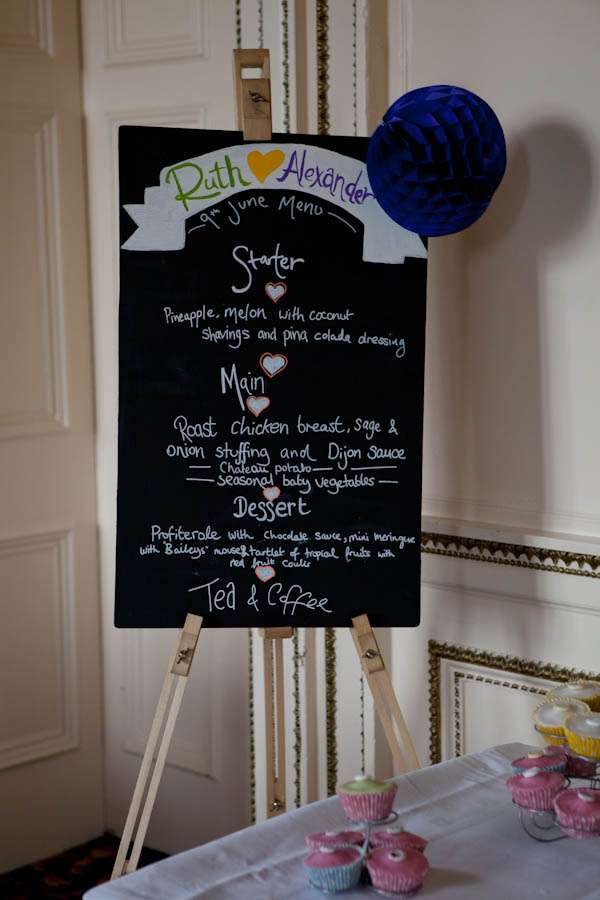 Ruth Alexander
9th June Menu
Starter
Pineapple, melon with coconut
shavings and pina colada dressing
Main
Roast chicken breast, sage &
onion stuffing and Dijon Sauce
Chateau potato
Seasonal baby vegetables
Dessert
Profiterole with chocolate sauce, mini meringue
with "Baileys" mouse & tartlet of tropical fruits with
red fruit coulis
Tea & Coffee